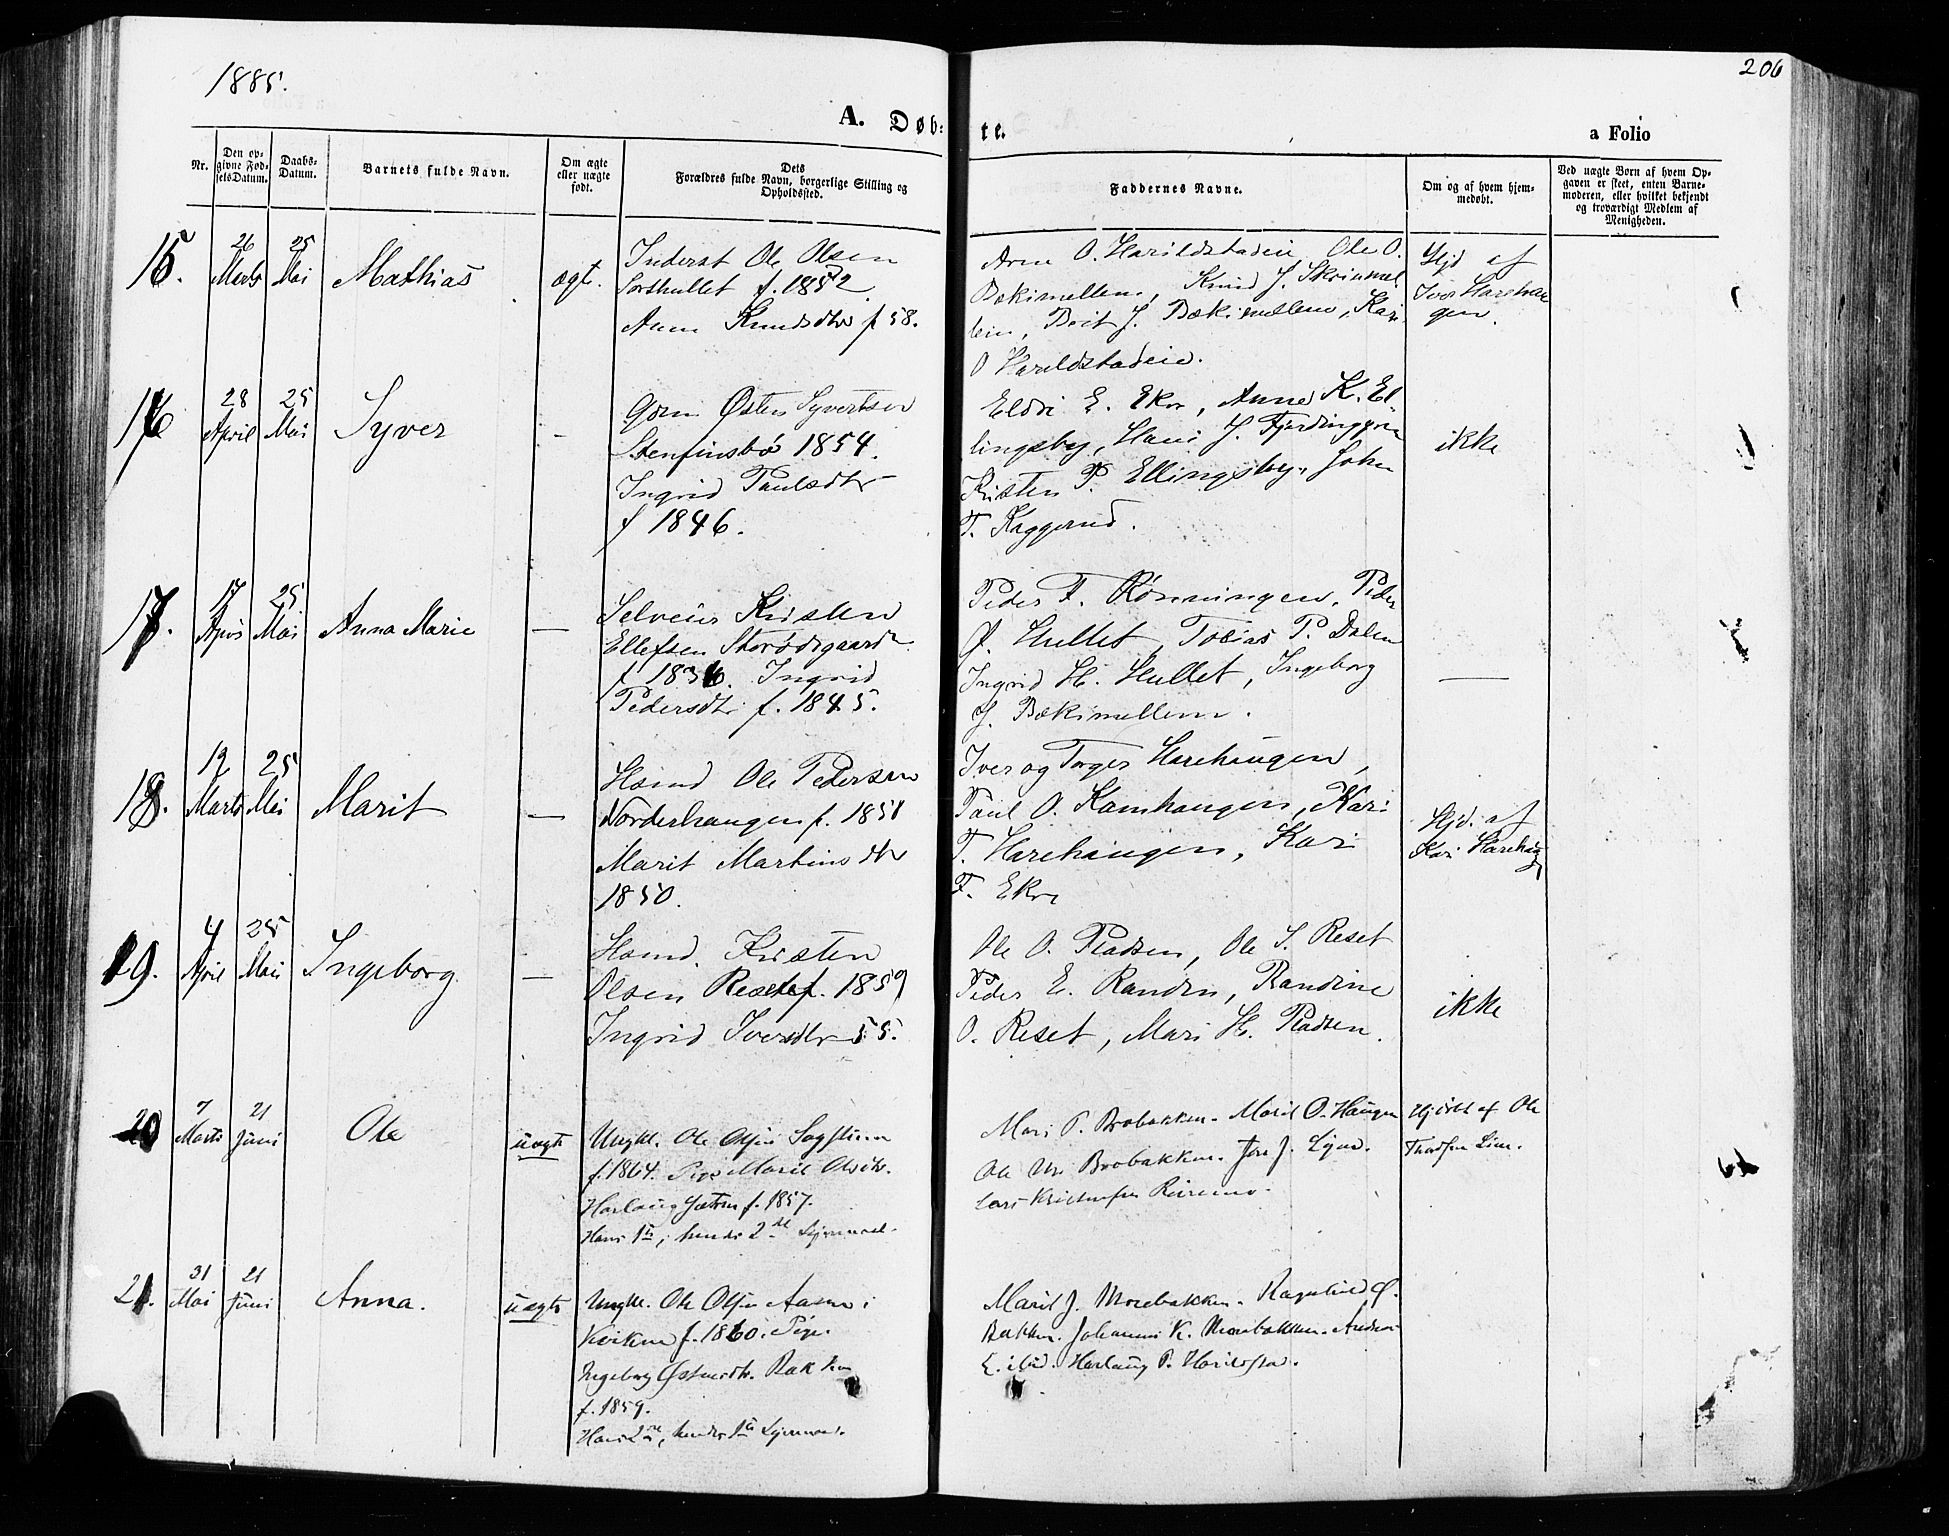 1885.
206
A. Døb-
te.
a Folio
Nr.
Den op-
givne Fød-
selsDatum.
Daabs-
Datum.
Barnets fulde Navn.
Om ægte
eller uægte
født.
Dets
Forældres fulde Navn, borgerlige Stilling og
Opholdssted.
Faddernes Navne.
Om og af hvem hjem-
medøbt.
Ved uægte Børn af hvem Op-
gaven er skeet, enten Barne-
moderen, eller hvilket bekjendt
og troværdigt Medlem af
Menigheden.
15.
26
Marts
25
Mai
Mathias
ægt.
Inderst Ole Olsen
f. 1852
Knudsdtr f 58.
Arne O. Harildstadeie Ole O.
Bækimellem, Knud J. Skrinnel
lein, Brit J. Bækimellem, Kari
O Harildstadeie.
Hjd af
Iver Harehau
gen.
16
28
April
25
Mai
Syver
–
Østen Syvertsen
Stenfinsbø 1854.
Ingrid Paulsdtr
f 1846.
E. Ekre, Anne K. El-
lingsby, Hans J.
Kristen P. Ellingsby, John
T. Kaggerud.
ikke
17.
17
April
25
Mai
Anna Marie
–
Selveier Kristen
Ellefsen
f 1836. Ingrid
Pedersdtr f. 1845.
Peder F. Rønningen, Peder
P. Hullet, Tobias P. Dalen
Ingrid H. Hullet, Ingeborg
J. Bækimellem.
–
18.
12
Marts
25
Mai
Marit
–
Hsmd Ole Pedersen
Norderhaugen f. 1851
Marit Martinsdtr
1850.
Iver og Torger Harehaugen,
Paul O. Kamhaugen, Kari
T. Harehaugen, Kari
F. Ekre
Hjd. af
Kari Harehaug
19.
4
April
25
Mai
Ingeborg
–
Hsmd. Kristen
Olsen Reset f. 1859
Ingrid Iversdtr 55.
Ole O. Pladsen, Ole S. Reset
Peder E. Randen, Randine
O. Reset, Mari H. Pladsen.
ikke
20
7
Marts
21
Juni
Ole
uægte
Ungkl. Ole Olsen Sagstuen
f. 1864. Pige Marit Olsdtr.
Harlaug Sætren f. 1857.
Hans 1te, hendes 2det Leiermaal.
Mari P. Brobakken. Marit O. Haugen
Ole Brobakken. Jon J.
Hjdøbt af Ole
21.
31
Mai
21
Juni
Anna.
uægte
Ungkl. Ole Olsen Aasen i
Kvikne f. 1860. Pige
Ingeborg Østensdtr. Bakken
f. 1859.
Hans 2det, hendes 1te Leiermaal.
Marit J. Morebakken. Ragnhild Ø.
Bakken. Johannes K. Morebakken. Anders
E. Harlaug P. Harildsta.